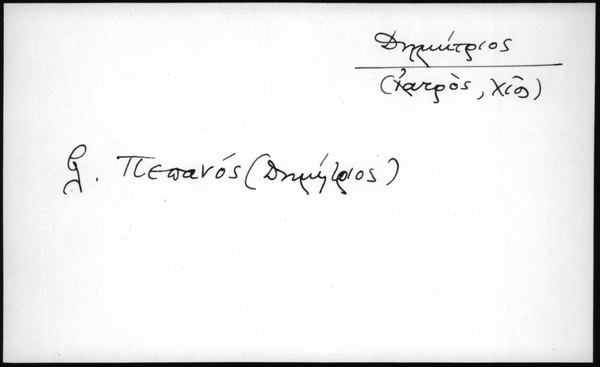 Δημήτριος
(ἰατρὸς, Χῖος)
βλ. Πεπανός (Δημήτριος)